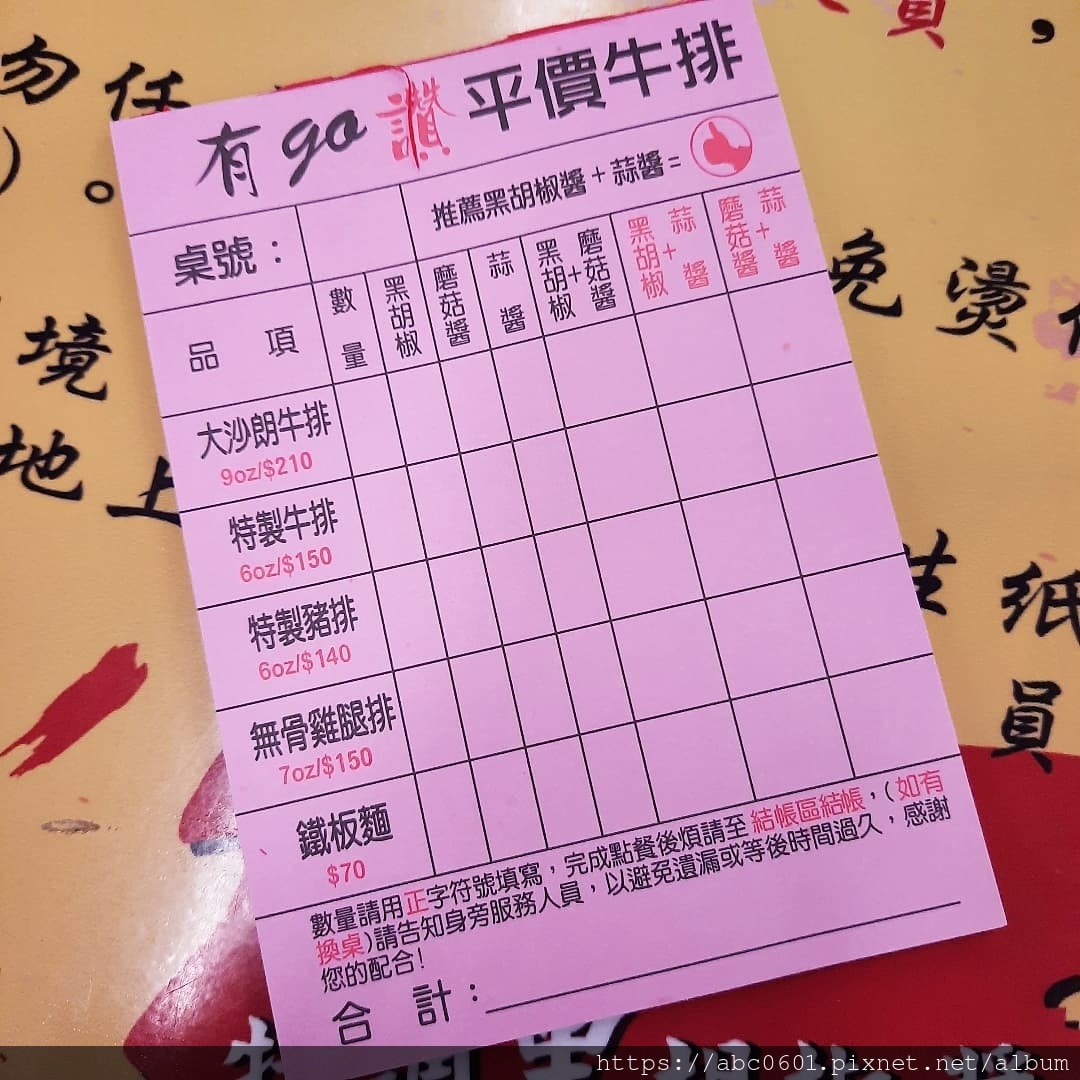 有go讚 平價牛排
桌號：
推薦黑胡椒醬+蒜醬=
品項
數量
黑胡椒
磨菇醬
蒜醬
黑胡椒+磨菇醬
黑胡椒+蒜醬
磨菇醬+蒜醬
大沙朗牛排
9oz/$210
特製牛排
6oz/$150
特製豬排
6oz/$140
無骨雞腿排
7oz/$150
鐵板麵
$70
數量請用正字符號填寫，完成點餐後煩請至結帳區結帳，(如有
換桌)請告知身旁服務人員，以避免遺漏或等後時間過久，感謝
您的配合！
合計：
勿任
)。
境
地上
員，
免燙
紙
員
https://abc0601.pixnet.net/album